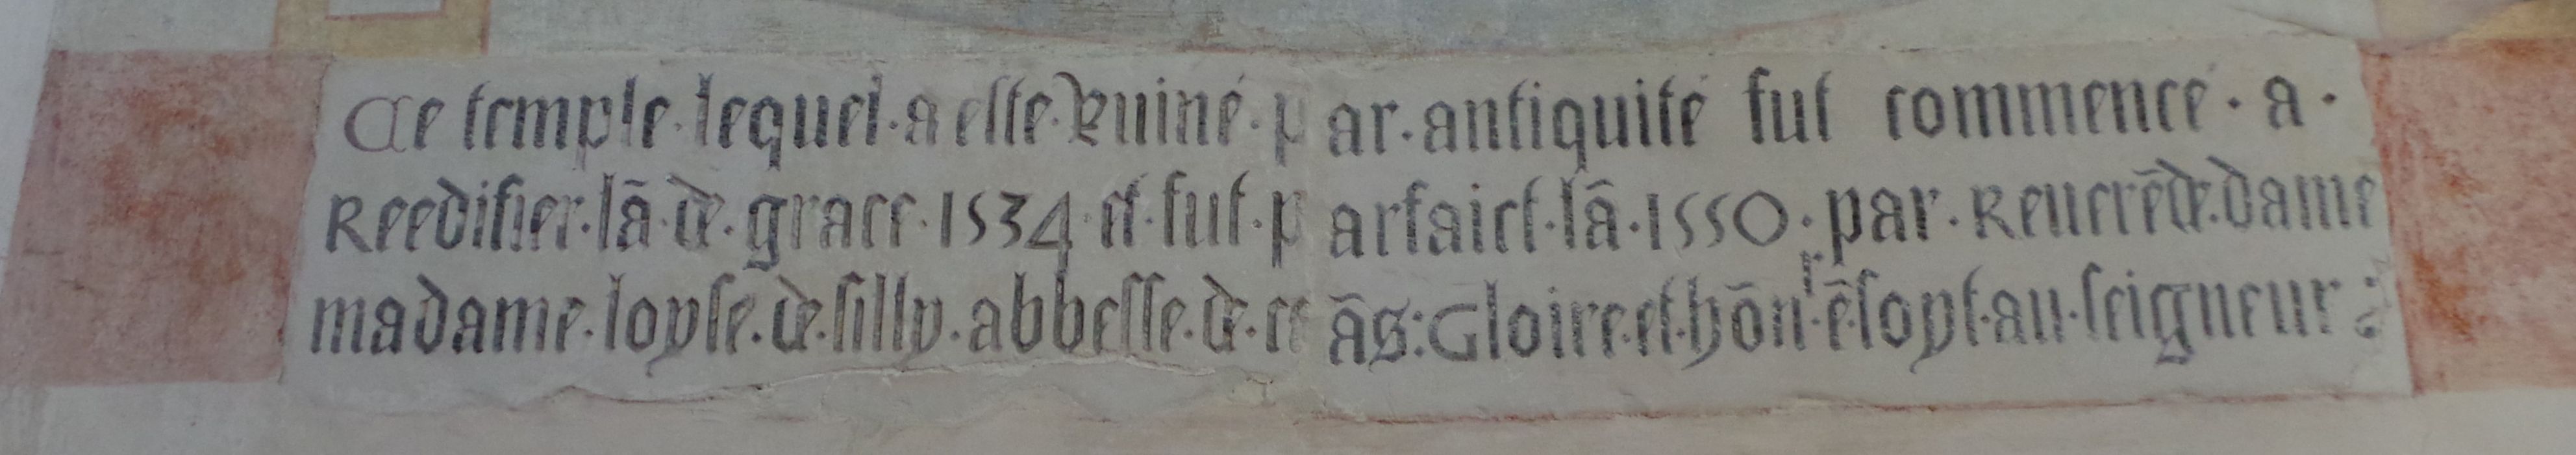 Ce temple · lequel · a este · Ruiné · par · antiquité fut commencé · a ·
Reedifier · lā · de · grace · 1534 · et · fut · parfaict · lā · 1550 · par · Reuerēde · dame
madame · loyse · de · silly · abbesse · de · ceās : Gloire · et · hōnʳ · ē · soyt · au · seigneur :